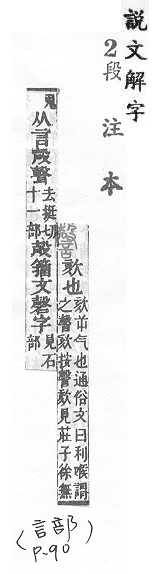 説文解字
2段注本
謦 欬也
欬屰气也通俗文曰利喉謂
之謦欬按謦欬見莊子徐無
鬼
从言殸聲
去挺切
十一部
殸籒文磬字
見石
部
(言部)
p.90